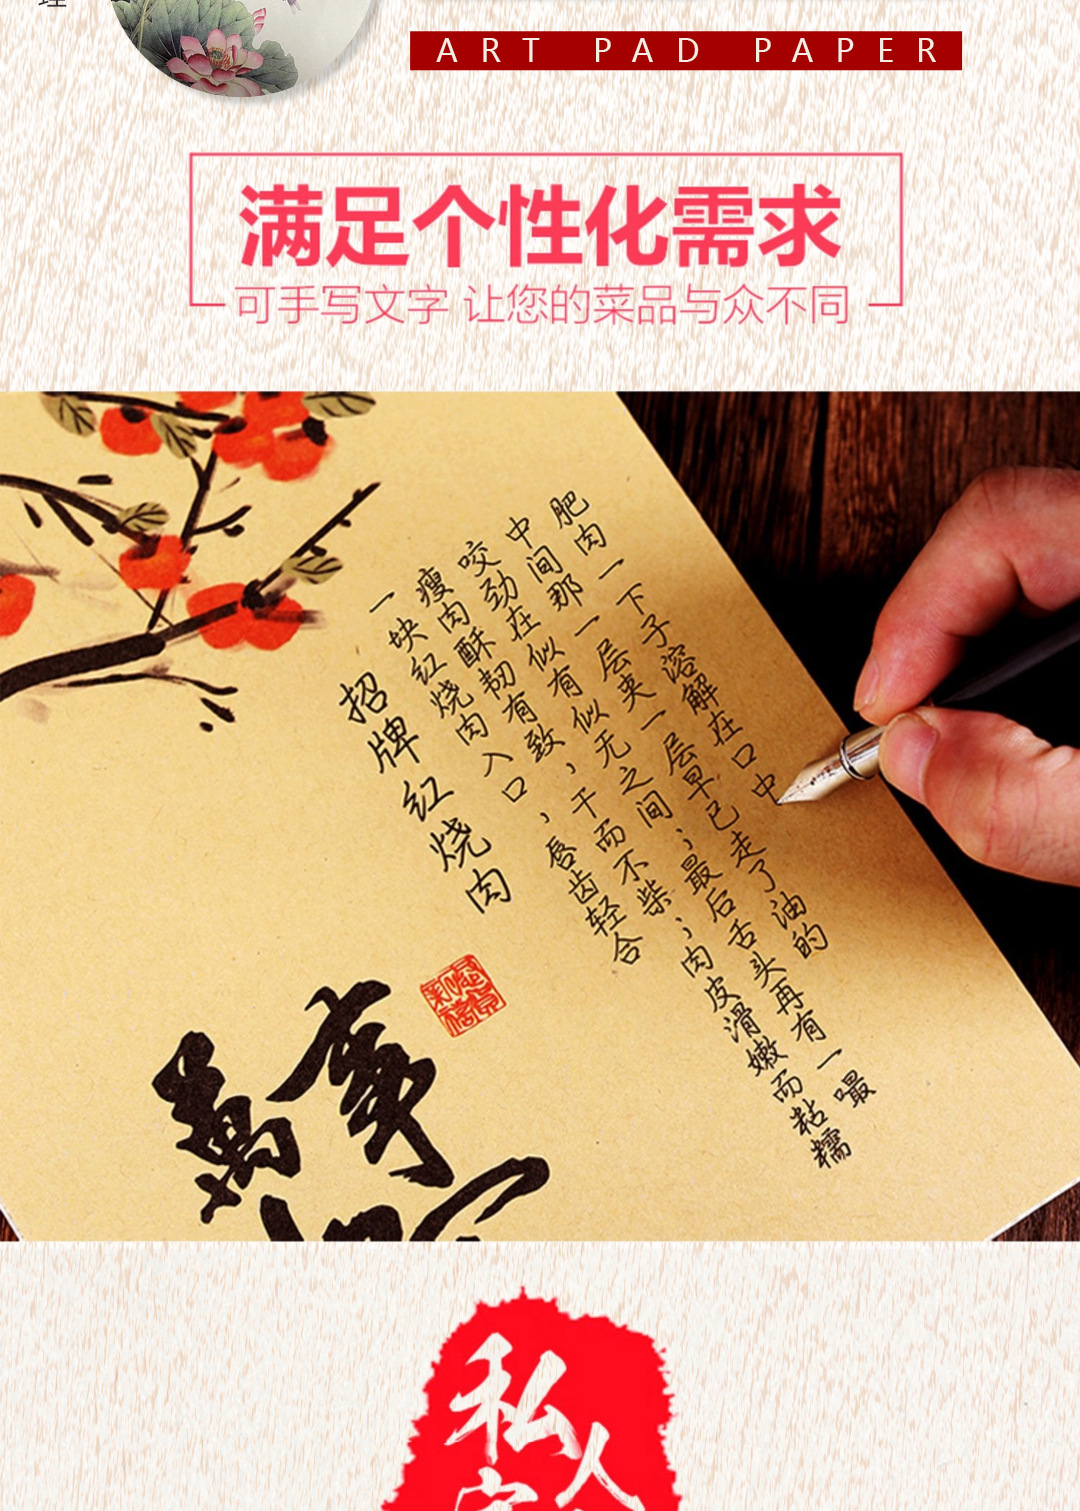 ART PAD PAPER
满足个性化需求
可手写文字 让您的菜品与众不同
招牌红烧肉
一块红烧肉入口,唇齿轻合
瘦肉酥韧有致,干而不柴;肉皮滑嫩而粘糯
咬劲在似有似无之间;最后舌头再有一嘬
中间那一层夹一层早已走了油的
肥肉一下子溶解在口中
萬事
私人